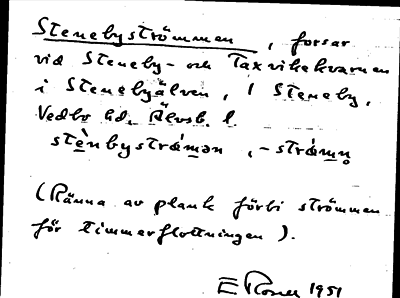 Stenebyströmmen, forsar
vid Steneby- och Taxvikekvarnen
i Stenebyälven, i Steneby,
Vedbo hd. Älvsb. l.
stènbystrǽmən, -strǽmn̥
(Ränna av plank förbi strömmen
för timmerflottningen).
1951